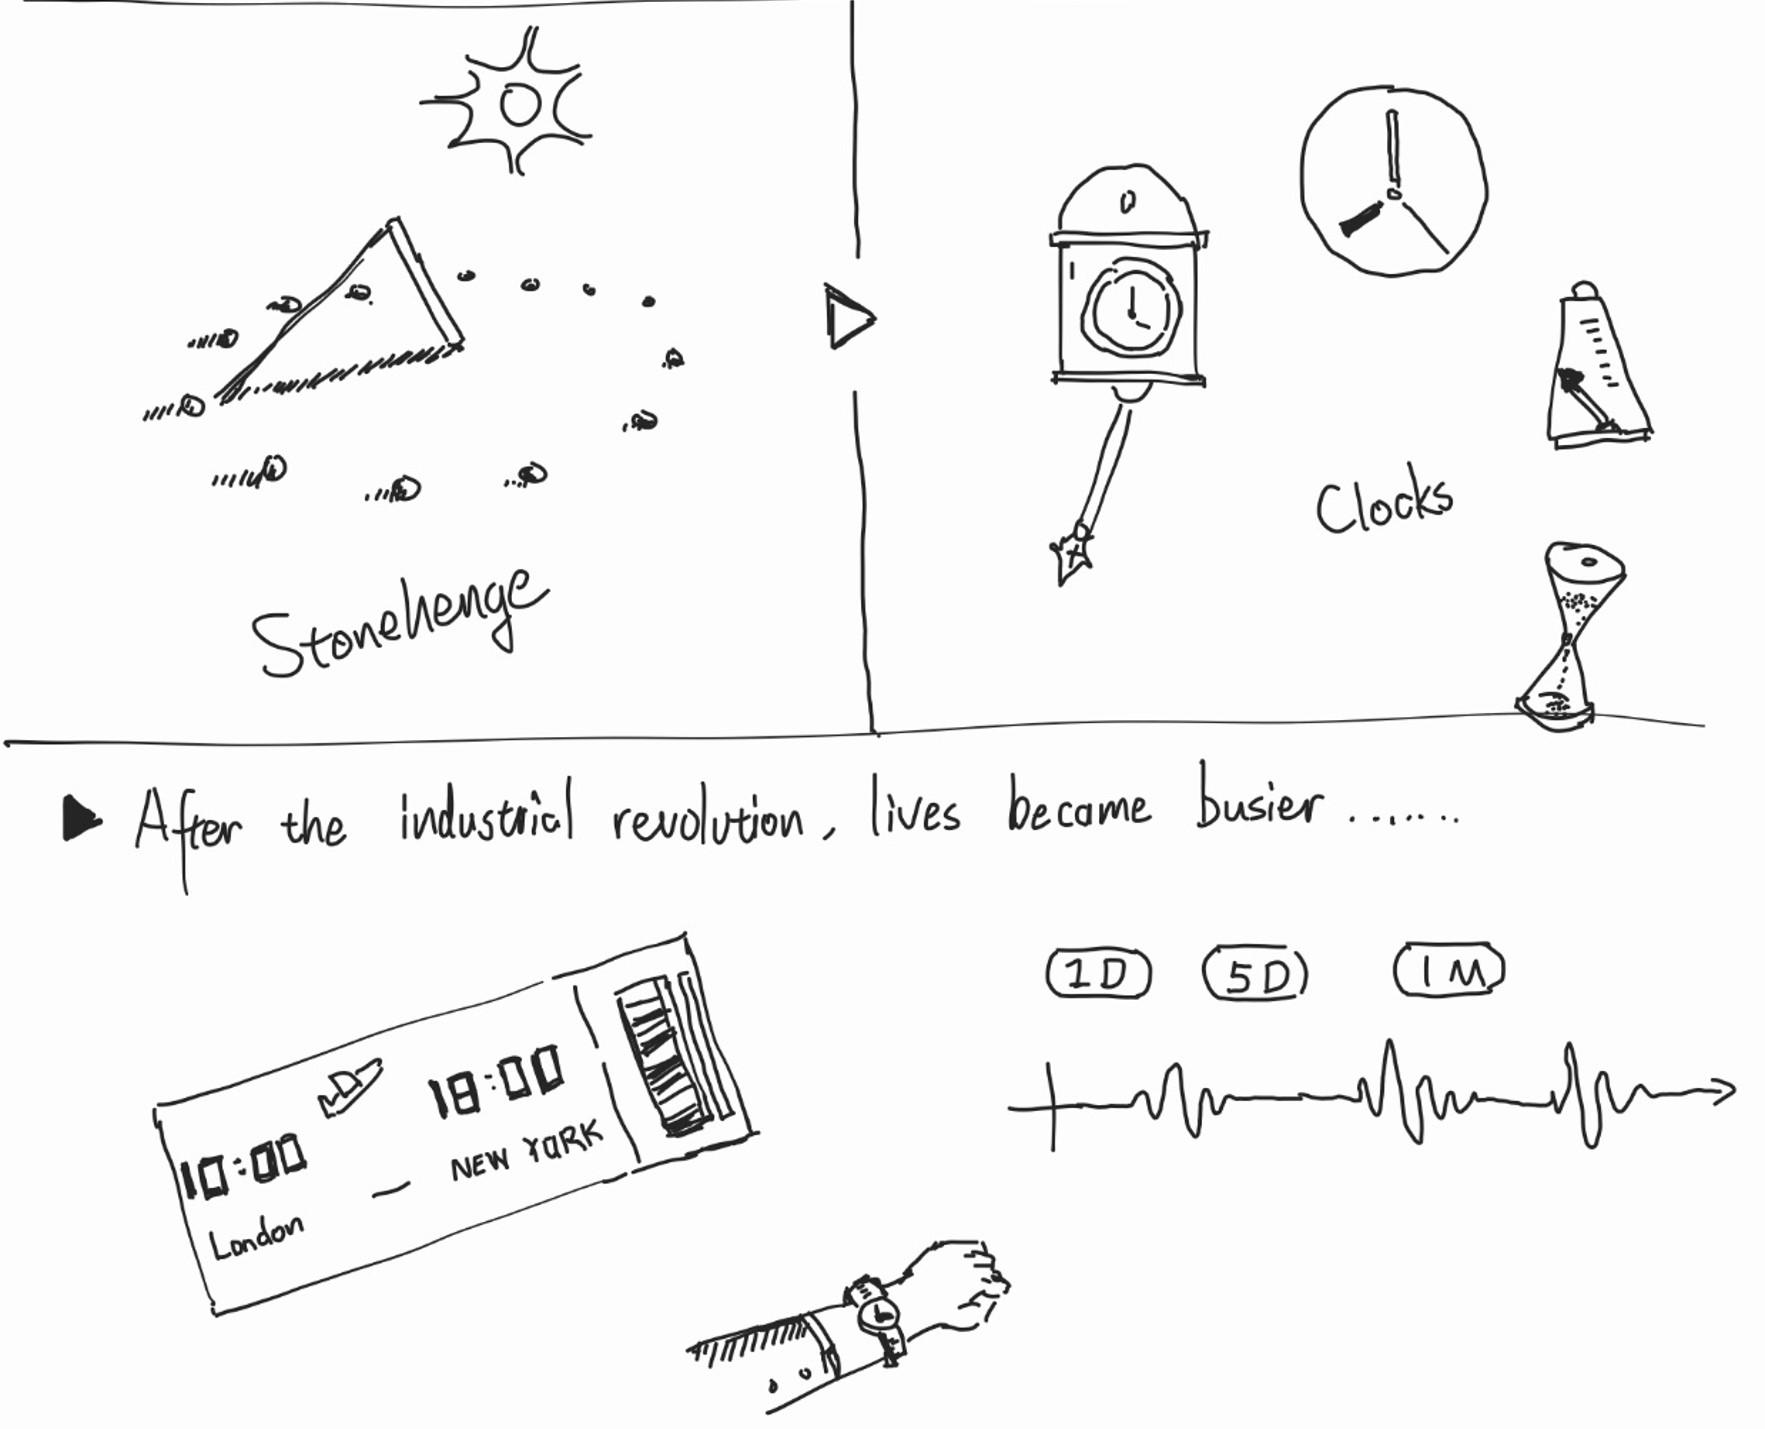 Stonehenge
Clocks
After the industrial revolution, lives became busier .......
10:00
18:00
London
—
NEW YORK
1D
5D
1M